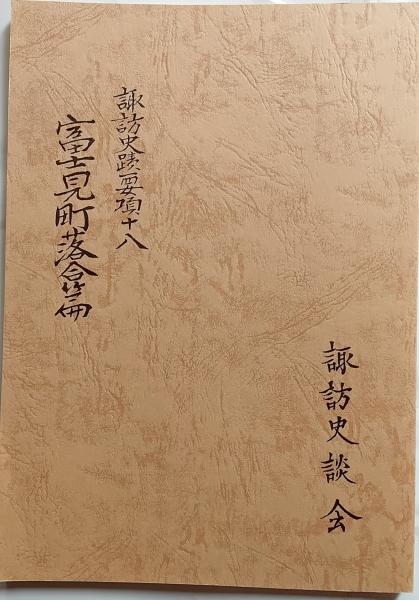 諏訪史蹟要項十八
富士見町落合篇
諏訪史談会